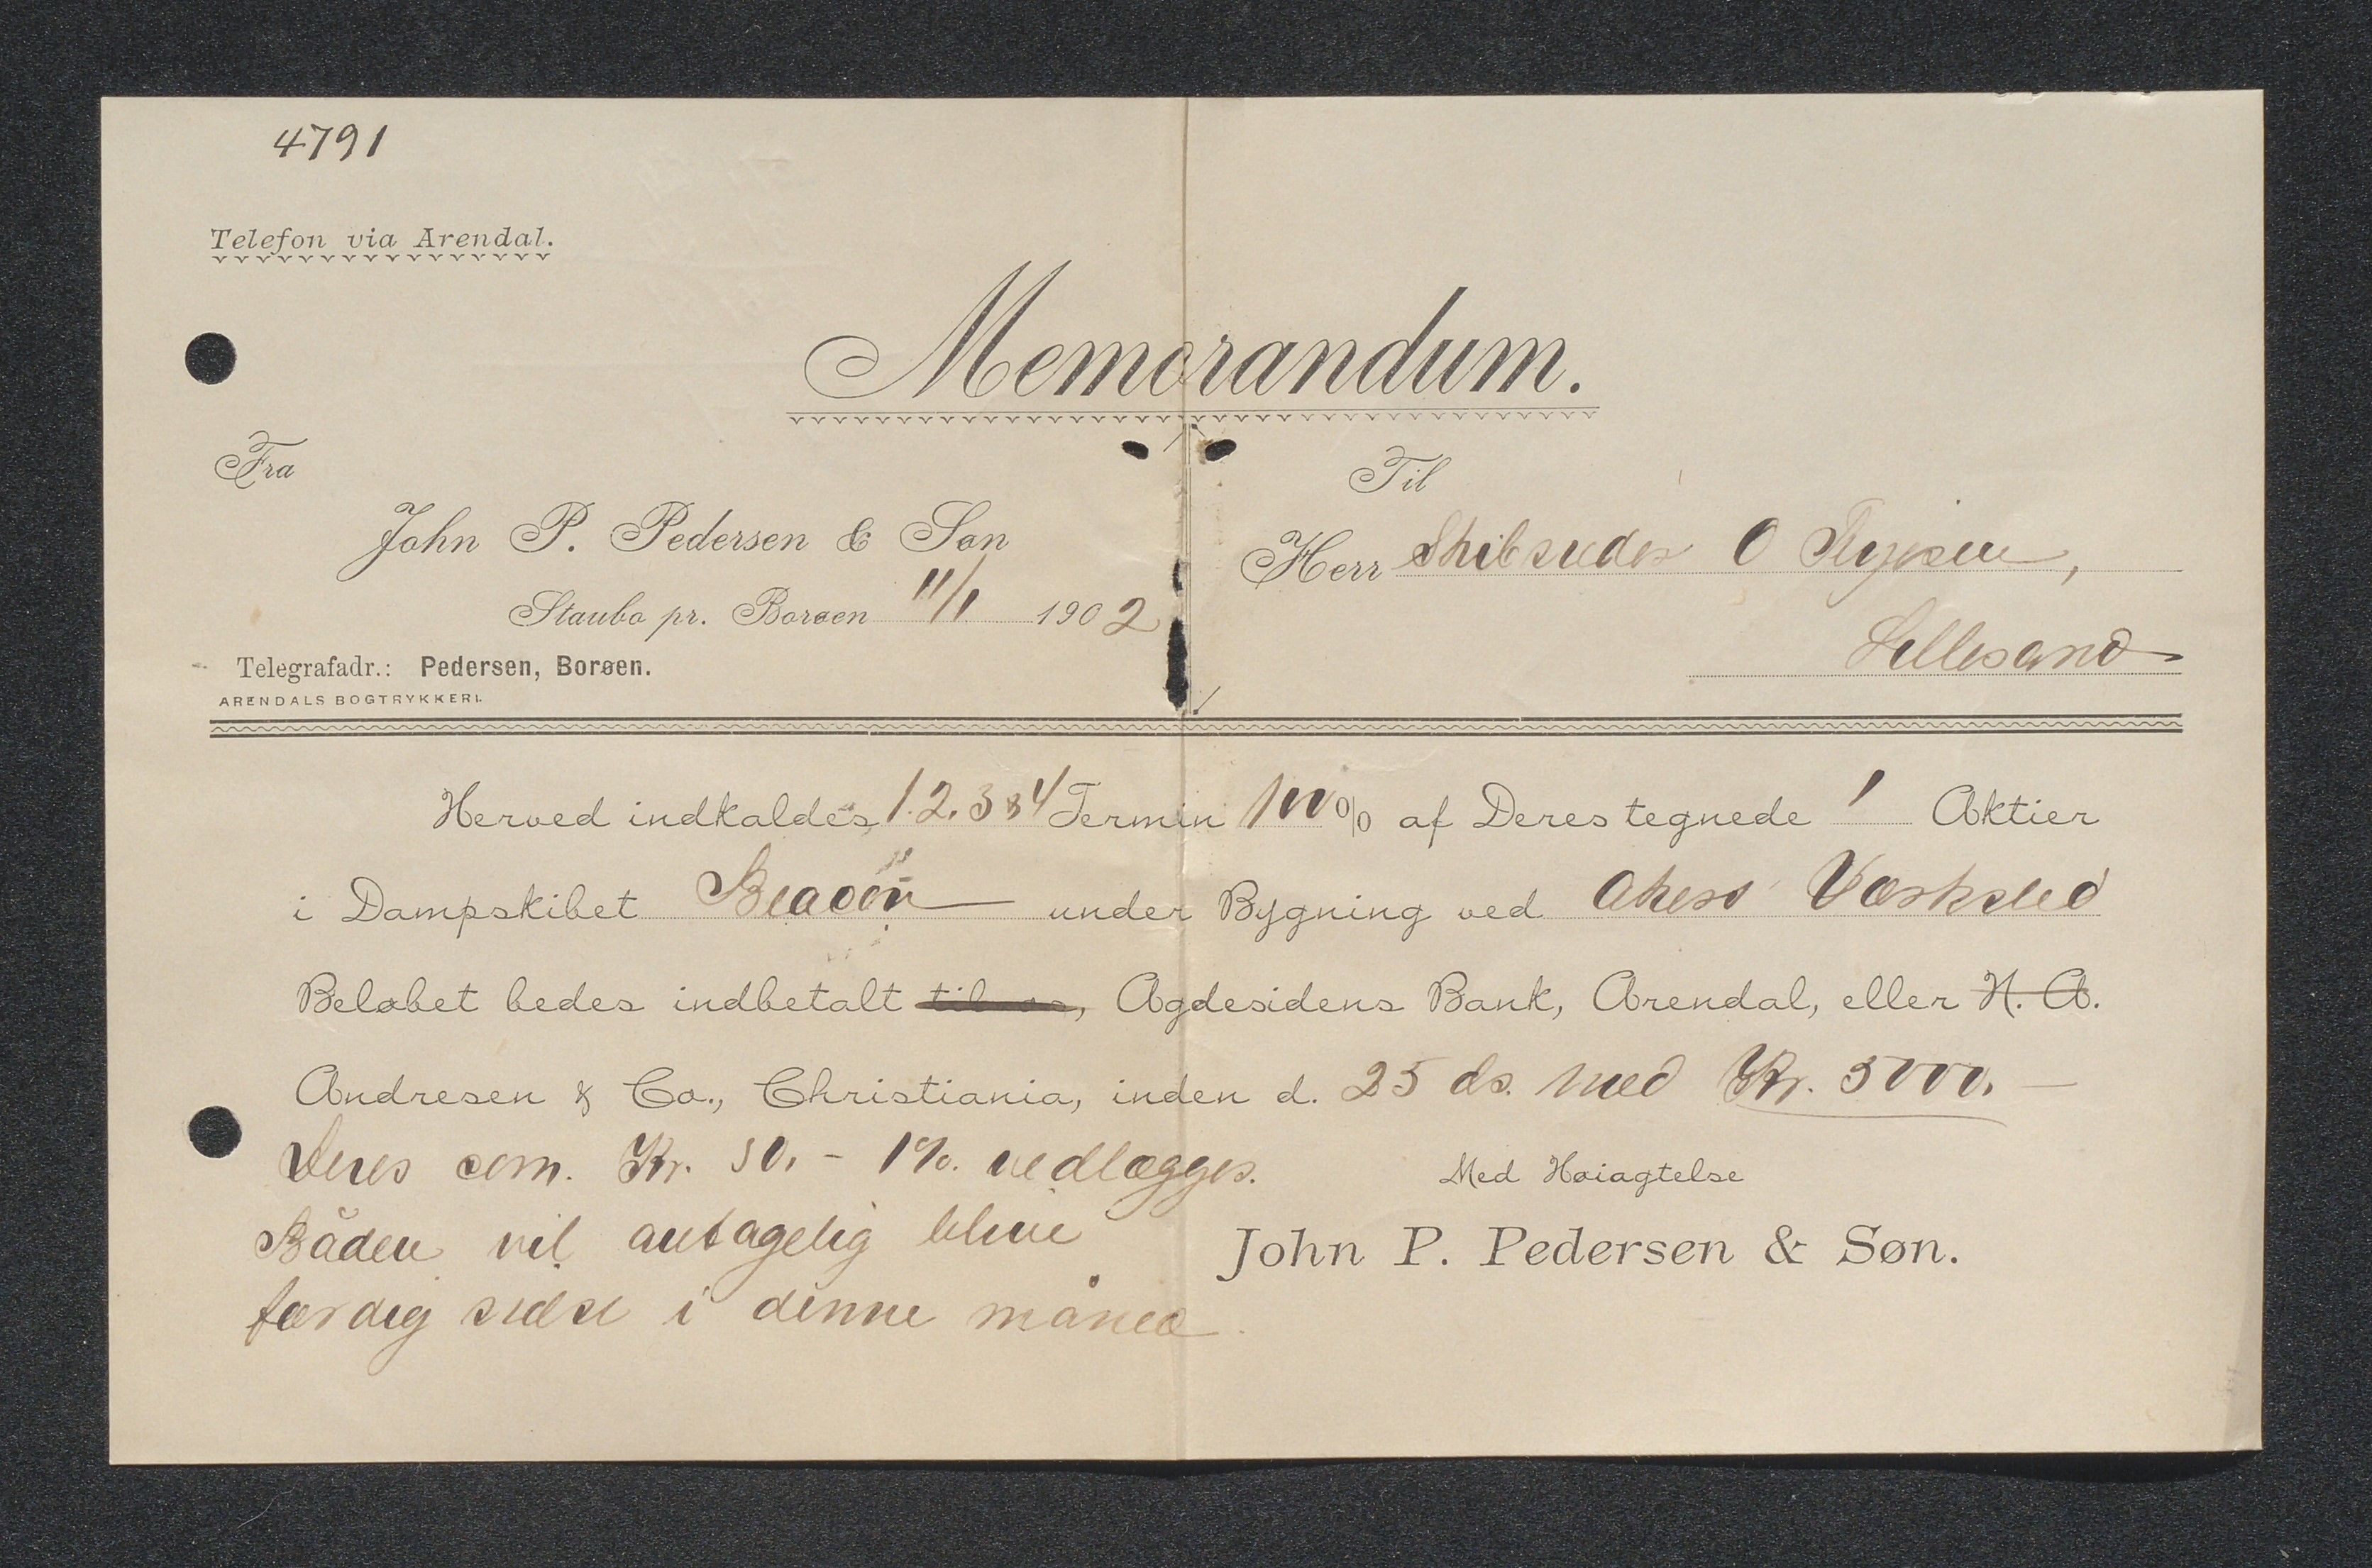 4791
Telefon via Arendal.
Memorandum.
Fra
John P. Pedersen & Søn
Staubø pr. Borøen 11/1 1902
Telegrafadr.: Pedersen, Borøen.
ARENDALS BOGTRYKKERI.
Til
Herr Skibsreder O
Lillesand
Herved indkaldes 1. 2. 3 & 4 Termin 100 % af Deres tegnede 1 Aktier
i Dampskibet "Beacon" under Bygning ved Akers Værksted
Beløbet bedes indbetalt til os, Agdesidens Bank, Arendal, eller N. A.
Andresen & Co., Christiania, inden d. 25 ds. med Kr. 5000. —
Deres com. Kr. 50. - 1%. vedlægges.
Med Høiagtelse
John P. Pedersen & Søn.
Båden vil antagelig blive
færdig sidst i denne måned.